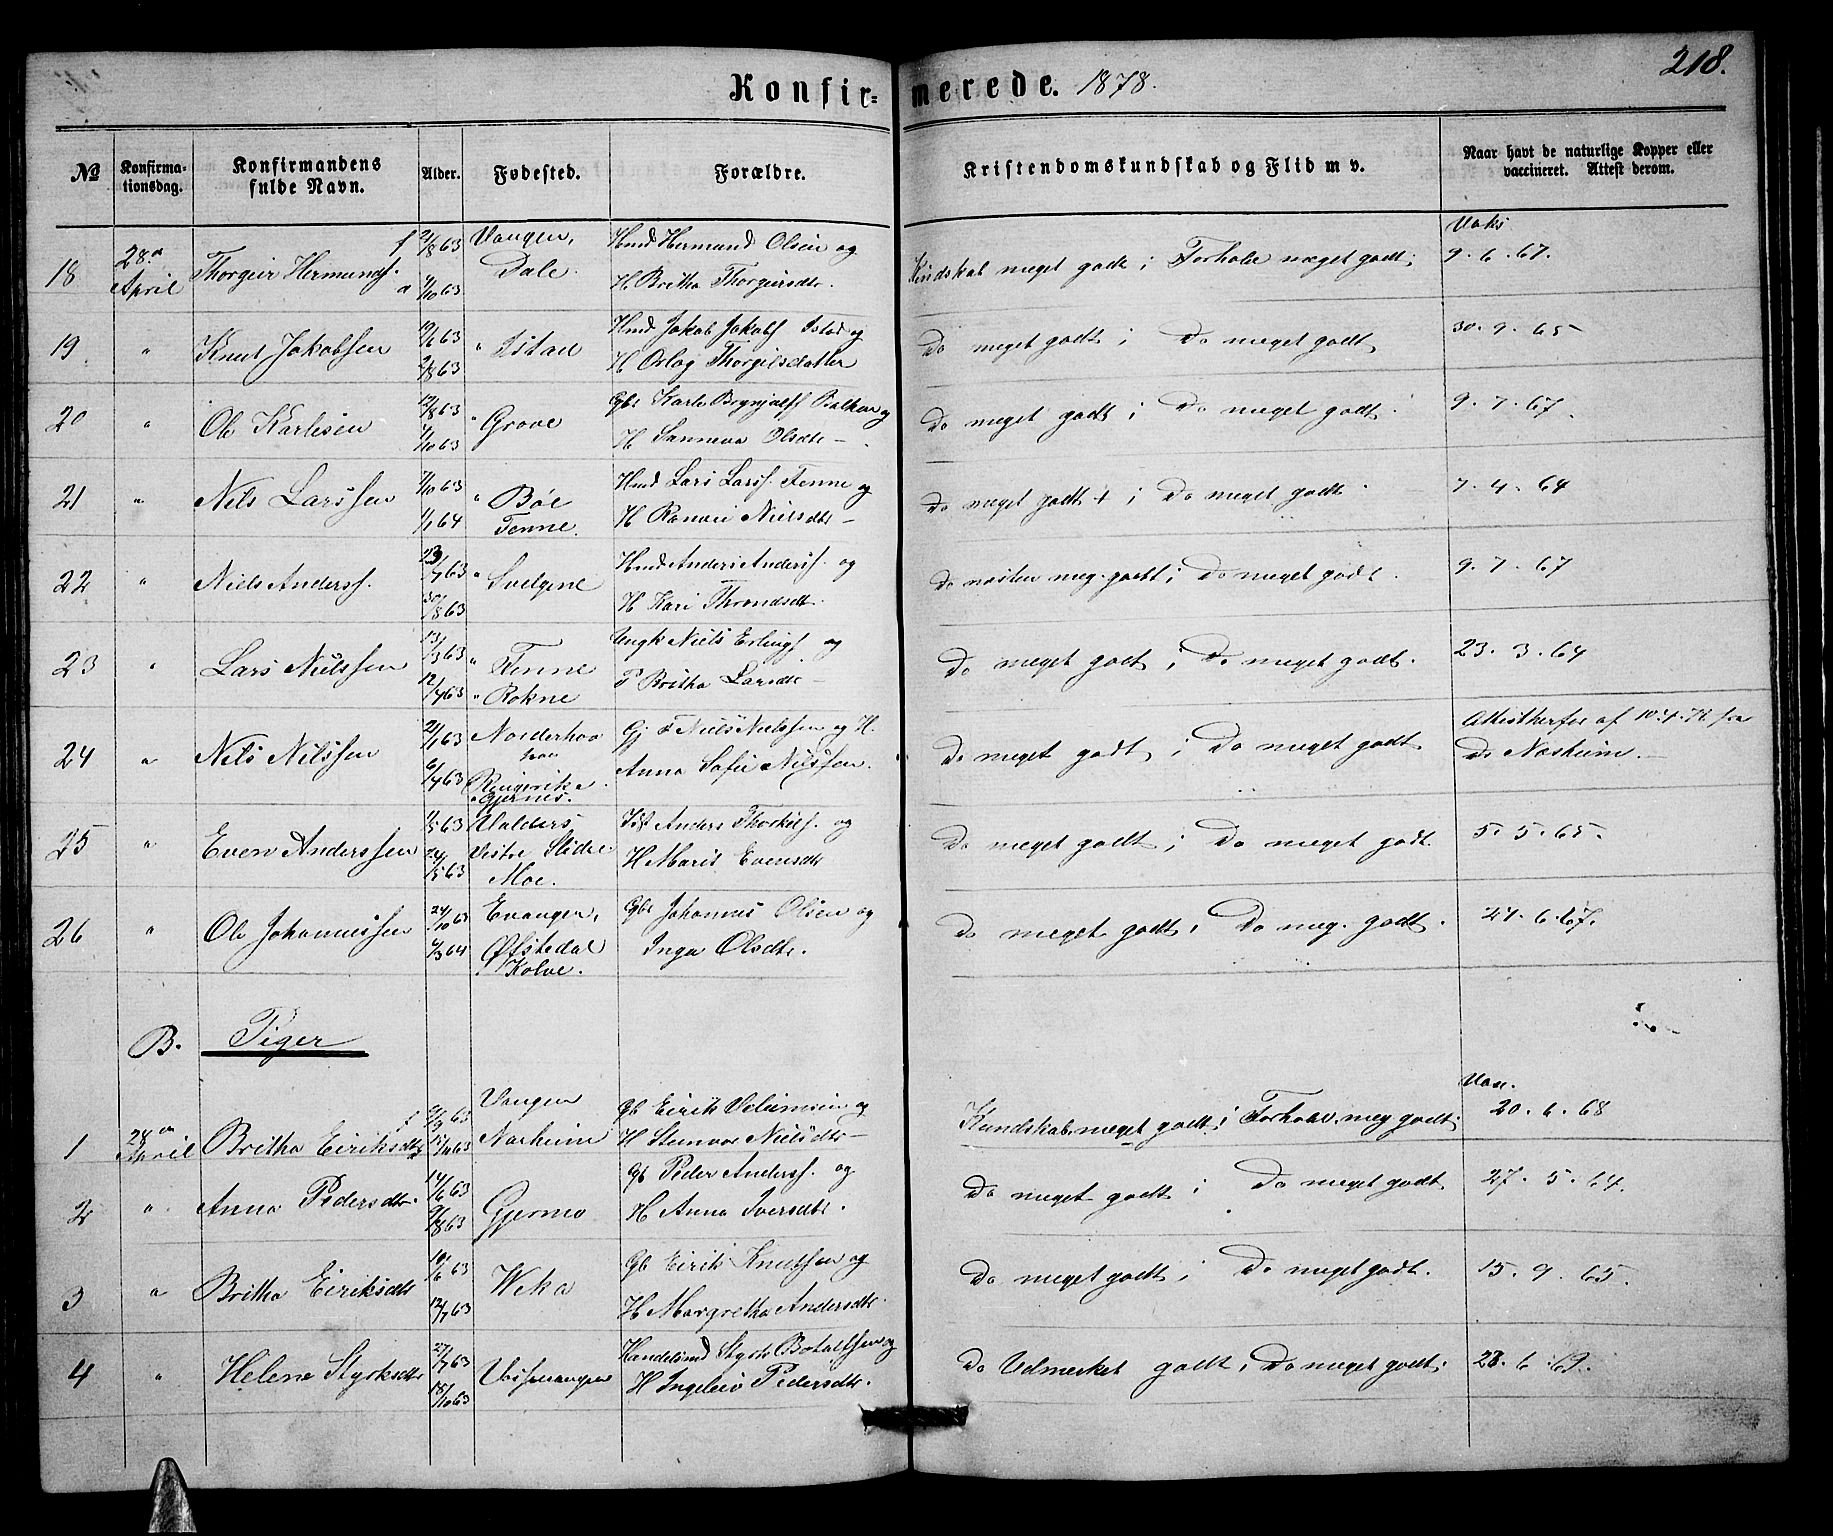 218.
Konfir= merede. 1878.
No Konfirma-tionsdag. Konfirmandens fulde Navn. Alder. Fødested. Forældre. Kristendomskundskab og Flid m v. Naar havt de naturlige Kopper eller vaccineret. Attest derom.
18 28de April Thorgeir Hermunds. f 21/8 63 a 4/10 63 Vangen, Dale. Hmd Hermund Olsen og H. Britha Thorgeirsdtr. Kundskab meget godt; Forhold meget godt; Vaks 9.6.67.
19 " Knut Jakobsen 19/6 63 2/8 63 " Istad Hmd Jakob Jakobs Istad og H Orlog Thorgilsdatter Do meget godt; Do meget godt 30.9.65
20 " Ole Karlsen 12/8 63 4/10 63 " Grove Gbr Karl Brynjulfs og H Sanneva Olsdtr Do meget godt; Do meget godt. 9.7.67.
21 " Nils Larssen 7/10 63 1/1 64 " Bøe Tenne. Hmd Lars Larss. Tenne og H Ranvei Nielsdtr Do meget godt +; Do meget godt 7.4.64
22 " Niels Anderss. 23/7 63 30/8 63 " Svelgene Hmd Anders Anderss. og H Kari Throndsdtr. Do næsten meg. godt; Do meget godt. 9.7.67
23 " Lars Nielssen 13/3 63 12/4 63 " Tenne " Rokne Ungk Niels Erlings og P Britha Larsdtr Do meget godt; Do meget godt. 23.3.64
24 " Nils Nilssen 21/1 63 6/4 63 Norderhov Ringerike " Gjernes. Gj F Niels Nielssen og H. Anna Sofie Nilssen. Do meget godt; Do meget godt Attest herfor af 10.4. fra Dr Næsheim.
25 " Even Anderssen 1/5 63 24/5 63 Valders Vestre Slidre Moe. Anders Thorkils. og H Marit Evensdtr Do meget godt; Do meget godt. 5.5.65.
26 " Ole Johannessen 24/10 63 /3 64 Evanger, Øfstedal Kolve. Gbr Johannes Olsen og Inga Olsdtr. Do meget godt; Do meg. godt. 27.6.67.
B. Piger
1 28de April Britha Eiriksdtr f /9 63 15/11 63 Vangen Næsheim Gb Eirik og H Steinvor Nielsdtr Kundskab meget godt; Forhold meg godt; Van. 20.6.68
2 " Anna Pedersdtr. 14/6 63 9/8 63 Gjerme Gb Peder Anderss. og H Anna Iversdtr. Do meget godt; Do meget godt 27.5.64.
3 " Britha Eiriksdtr 10/6 63 12/7 63 Weka Gb Eirik Knutsen og H Margretha Andersdtr. Do meget godt; Do meget godt. 15.9.65.
4 " Helene Styrksdtr 27/7 63 18/10 63 Vossevangen Handelsmd Styrk Botolfsen og H Ingeleiv Pedersdtr. Do Udmerket godt; Do meget godt. 28.6.69.